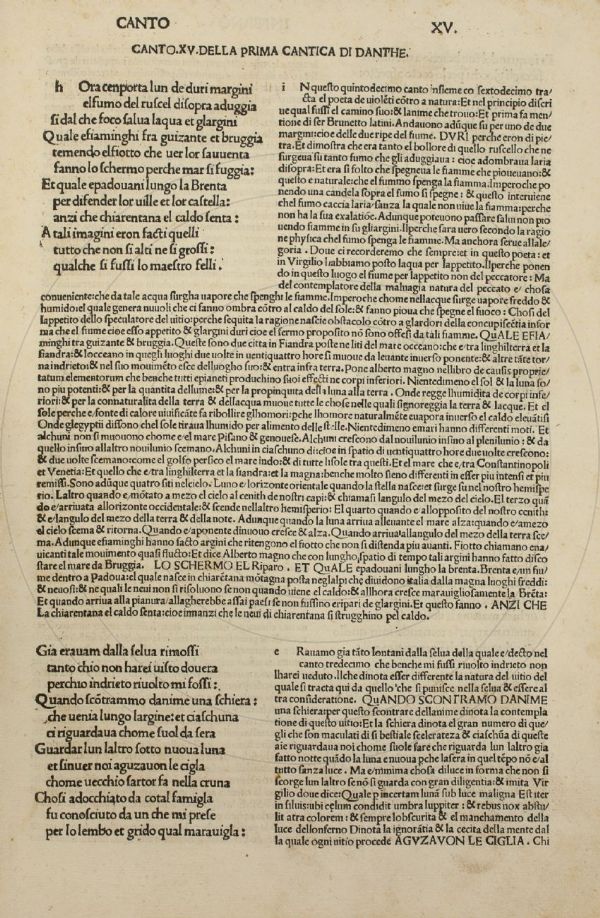 CANTO
XV.
CANTO.XV.DELLA PRIMA CANTICA DI DANTHE.
h Ora cenporta lun de duri margini
elfumo del ruscel disopra aduggia
si dal che foco salua laqua et glargini
Quale efiaminghi fra guizante et bruggia
temendo elfiotto che uer lor sauuenta
fanno lo schermo perche mar si fuggia:
Et quale epadouani lungo la Brenta
per difender lor uille et lor castella:
anzi che chiarentana el caldo senta:
A tali imagini eron facti quelli
tutto che non si alti ne si grossi:
qualche si fussi lo maestro felli.
i N questo quintodecimo canto insieme co sextodecimo tra
cta el poeta de uiolēti cōtro a natura: Et nel principio discri
ue qual fussi el camino suo: & lanime che trouo: Et prima fa men
tione di ser Brunetto latini. Andauono adūque su per uno de due
margini: cioe delle due ripe del fiume. DVRI perche eron di pie
tra. Et dimostra che era tanto el bollore di quello ruscello che ne
surgeua su tanto fumo che gli aduggiaua: cioe adombraua laria
disopra: Et era si folto che spegneua le fiamme che pioueuano: &
questo e naturale: che el fummo spenga la fiamma. Imperoche po
nendo una candela sopra el fumo si spegne: & questo interuiene
chel fumo caccia laria / sanza la quale non uiue la fiamma: perche
non ha la sua exalatiōe. Adunque poteuono passare salui non pio
uendo fiamme in su gliargini. Ilperche sara uero secondo la ragio
ne physica chel fumo spenga le fiamme. Ma anchora serue allale
goria. Doue ci recorderemo che sempre: et in questo poeta: et
in Virgilio habbiamo posto laqua per lappetito. Ilperche ponen
do in questo luogo el fiume per lappetito non del peccatore: Ma
del contemplatore della malugia natura del peccato e/ chosa
conueniente: che da tale acqua surgha uapore che spenghi le fiamme. Imperoche chome nellacque surge uapore freddo &
humido: el quale genera nuuoli che ci fanno ombra cōtro al caldo del sole: & fanno pioua che spegne el fuoco: Chosi del
lappetito dello speculatore del uitio perche sequita la ragione nasce obstacolo cōtro a glardori della concupiscētia infor
ma che el fiume cioe esso appetito & glargini duri cioe el fermo proposito nō sono offesi da tali fiamme. QuALE EFIA
minghi tra guizante & bruggia. Queste sono due citta in Fiandra poste ne liti del mare occeano: che e tra linghilterra et la
fiandra: & locceano in quegli luoghi due uolte in uentiquattro hore si muoue da leuante inuerso ponente: & altre tāte tor
na indrieto: & nel suo mouimēto esce delluogho suo: & entra infra terra. Pone alberto magno nel libro de causis proprie/
tatum elementorum che benche tutti epianeti produchino suoi effecti ne corpi inferiori. Nientedimeno el sol & la luna so/
no piu potenti: & per la quantita dellume: & per la propinquita della luna alla terra. Onde regge lhumidita de corpi infe/
riori: & per la connaturalita della terra & dellacqua muoue tutte le chose nelle quali signoreggia la terra & lacque. Et el
sole perche e/ fonte di calore uiuificāte fa ribollire glhomori: pche lhomore naturalmēte euapora inuerso el caldo eleuatiui
Onde glegyptii diffono chel sole tiraua lhumido per alimento delle stelle. Nientedimeno emari hanno differenti moti. Et
alchuni non si muouono chome e/ el mare Pisano & genouese. Alchuni crescono dal nouilunio insino al plenilunio: & da
quello insino allaltro nouilunio scemano. Alchuni in ciaschuno di cioe in spatio di uentiquattro hore due uolte crescono:
& due uolte scemano: come el golfo persico el mare indo: & di tutte lisole tra questi. Et el mare che e/ tra Constantinopoli
et Venetia: Et quello che e/ tra linghilterra et la fiandra: et la magna: benche molto sieno differenti in esser piu intensi et piu
remissi. Sono adūque quatro siti nel cielo. Luno e/ lorizonte orientale quando la stella nasce: et surge su nel nostro hemispe
rio. Laltro quando e/ mōtato a mezo el cielo al cenith de nostri capi: & chiamasi langulo del mezo del cielo. El terzo quā
do e/ arriuata allorizonte occidentale: & scende nellaltro hemisperio: El quarto quando e allopposito del nostro cenith:
& e/ langulo del mezo della terra & della nocte. Adunque quando la luna arriua alleuante el mare alza: quando e/ a mezo
el cielo scema & ritorna. Quando e/ a ponente dinuouo cresce & alza. Quando arriua allangulo del mezo della terra sce/
ma. Adunque efiaminghi hanno facto argini che ritengono el fiotto che non si distenda piu auanti. Fiotto chiamano ena/
uicanti tale mouimento quasi fluctio: Et dice Alberto magno che con lungho spatio di tempo tali argini hanno fatto disco
stare el mare da Bruggia. LO SCHERMO EL Riparo. ET QuALE epadouani lungho la brenta. Brenta e/ un fiu/
me dentro a Padoua: el quale nasce in chiarētana mōtagna posta neglalpi che diuidono italia dalla magna luoghi freddi:
& neuosi: & ne quali le neui non si risoluono se non quando uiene el caldo: & allhora cresce marauigliosamente la Brēta:
Et quando arriua alla pianura / allagherebbe assai paesi se non fussino eripari de glargini. Et questo fanno. ANZI CHE
La chiarentana el caldo senta: cioe innanzi che le neui di chiarentana si strugghino pel caldo.
Gia erauam dalla selua rimossi
tanto chio non harei uisto douera
perchio indrieto riuolto mi fossi:
Quando scōtrammo danime una schiera:
che uenia lungo largine: et ciaschuna
ci riguardaua chome suol da sera
Guardar lun laltro sotto nuoua luna
et sinuer noi aguzauon le cigla
chome uecchio sartor fa nella cruna
Chosi adocchiato da cotal famigla
fu conosciuto da un che mi prese
per lo lembo et grido qual marauigla:
e Rauamo gia tāto lontani dalla selua della quale e/ decto nel
canto tredecimo che benche mi fussi riuolto indrieto non
lharei ueduto. Ilche dinota esser differente la natura del uitio del
quale si tracta qui da quello che si punisce nella selua & essere al
tra consideratione. QuANDO SCONTRAMO DANIME
una schiera: per questo scontrare dellanime dinota la contempla
tione di questo uitio: Et la schiera dinota el gran numero di que/
gli che son maculati di si bestiale sceleratezza: & ciaschūa di queste
aie riguardaua noi chome suole sare che riguarda lun laltro gia
fatto notte quādo la luna e nuoua pche lasera in quel tēpo nō e/ al
tutto sanza luce. Ma e/ minima chosa diluce in forma che non si
scorge lun laltro se nō si guarda con gran diligentia: & imita Vir
gilio doue dice: Quale p incertam lunā sub luce maligna Est iter
in siluis: ubi celum condidit umbra Iuppiter: & rebus nox abstu/
lit atra colorem: & sempre lobscurita & el manchamento della
luce dellonferno Dinota la ignorātia & la cecita della mente dal
la quale ogni uitio procede AGVZAVON LE CIGLIA. Chi